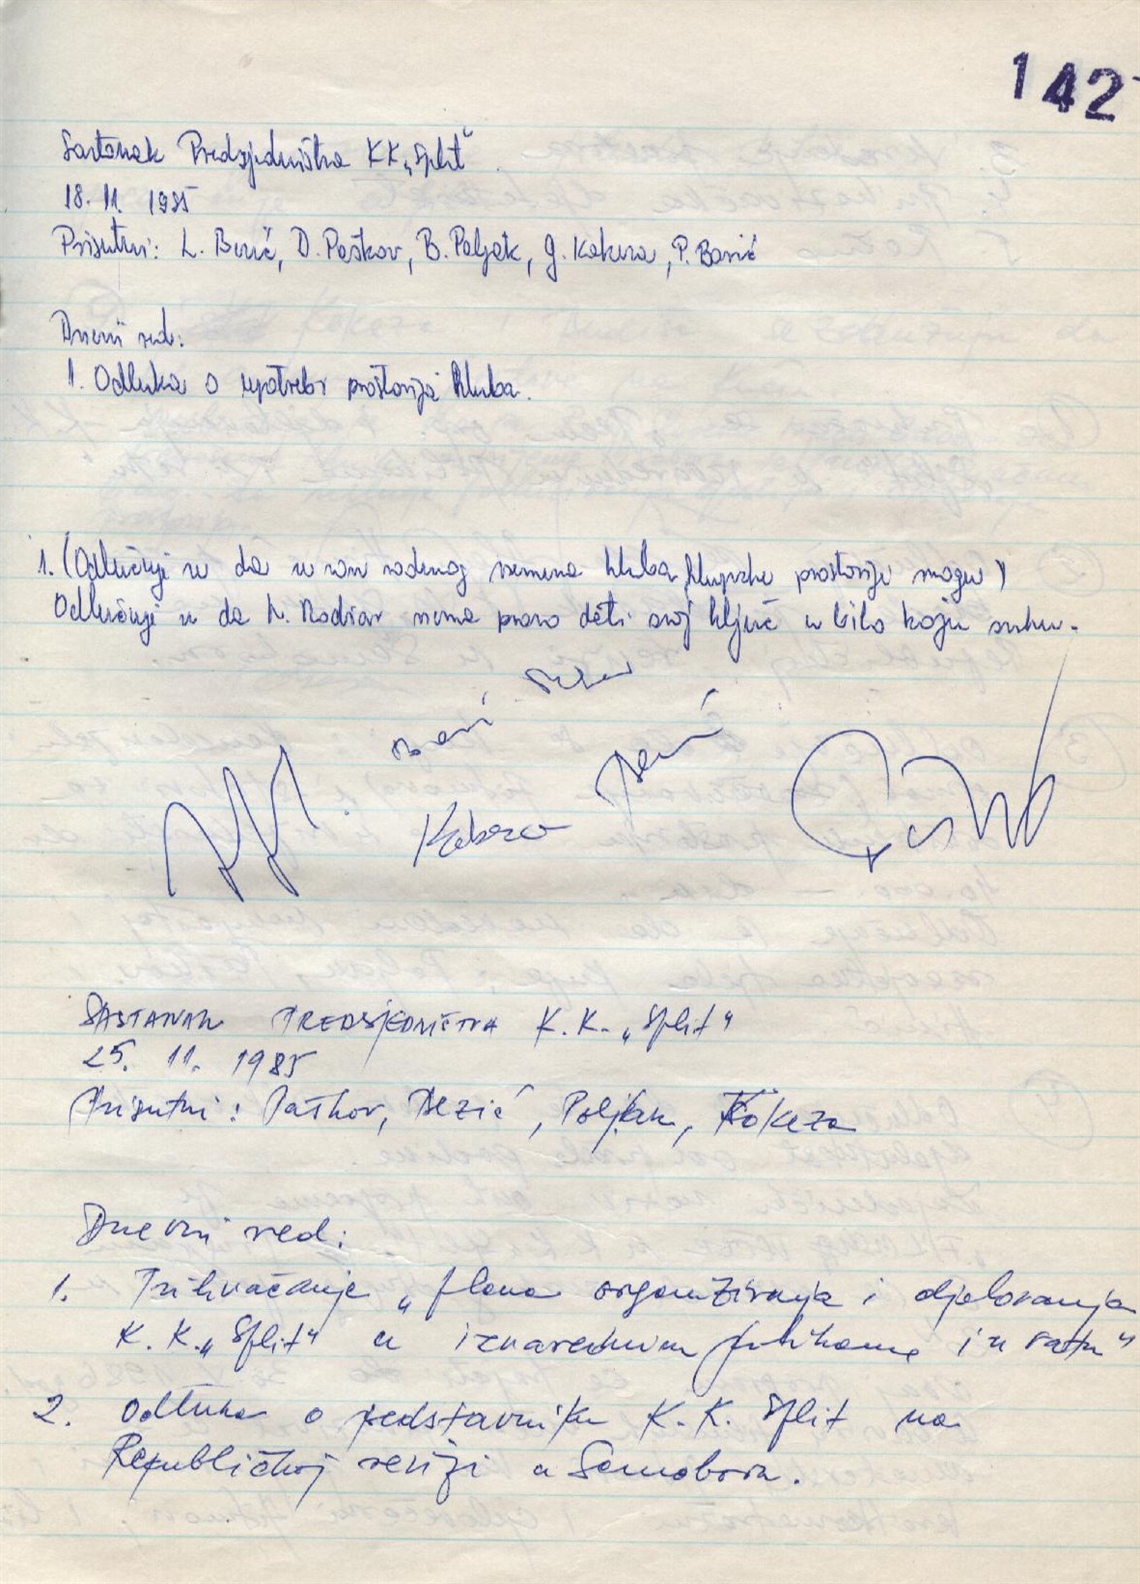 142
Sastanak Predsjedništva KK „Split"
18. 11. 1985
Prisutni: L. Bezić, D. Paškov, B. Poljak, J. Kokeza, P. Barić
Dnevni red:
1. Odluka o upotrebi prostorija kluba.
1. (Odlučuje se da se van radnog vremena kluba klupske prostorije mogu)
Odlučuje se da N. Rodzar nema pravo dati svoj ključ u bilo koju svrhu.
Barić
Kokeza
SASTANAK PREDSJEDNIŠTVA K.K. „Split"
25. 11. 1985
Prisutni: Paškov, Bezić, Poljak, Kokeza
Dnevni red:
1. Prihvaćanje „plana organiziranja i djelovanja
K.K. „Split" u izvanrednim prilikama i u ratu"
2. Odluka o predstavniku K.K. Split na
Republičkoj reviji u Samoboru.